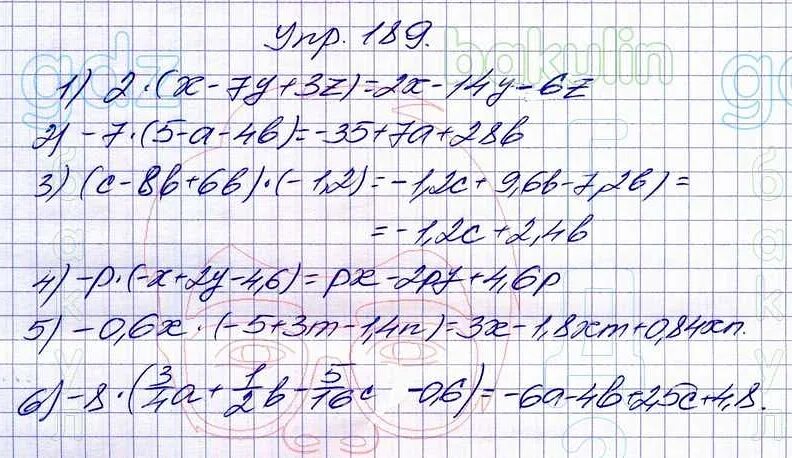 Упр. 189.
1) 2·(x-7y+3z)=2x-14y-6z
2) -7·(5-a-4b)=-35+7a+28b
3) (c-8b+6b)·(-1,2)=-1,2c+9,6b-7,2b)=
=-1,2c+2,4b
4) -p·(-x+2y-4,6)=px-2py+4,6p
5) -0,6x·(-5+3m-1,4n)=3x-1,8xm+0,84xn.
6) -8·(3/4a+1/2b-5/16c -0,6)=-6a-4b+2,5c+4,8.
gdz
bakulin